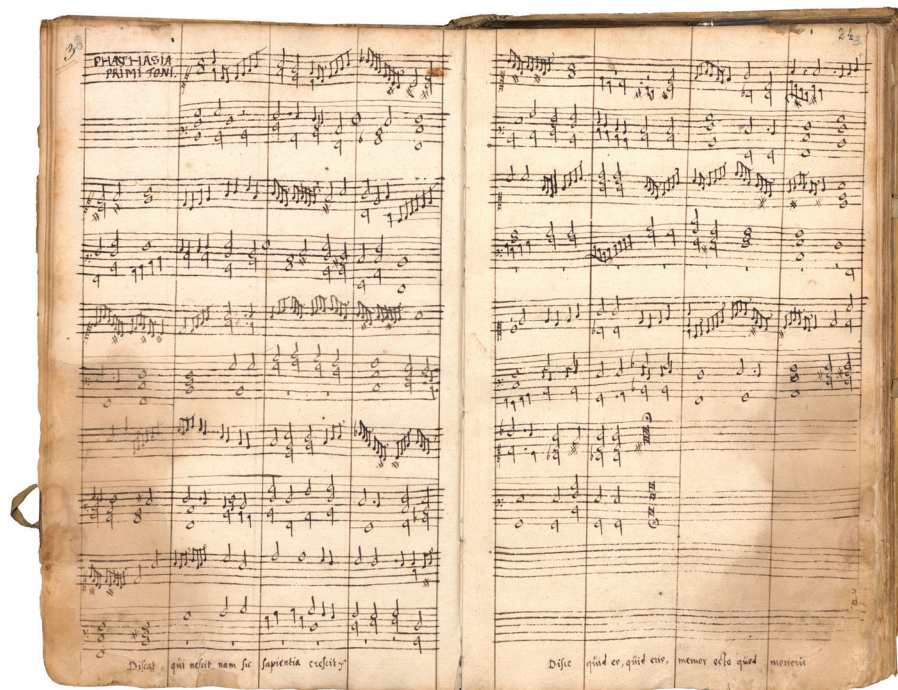 3
PHANTHASIA
PRIMI TONI.
Discat qui nescit, nam sic sapientia crescit
24
Disce quid es, quid eris, memor esto quod morieris